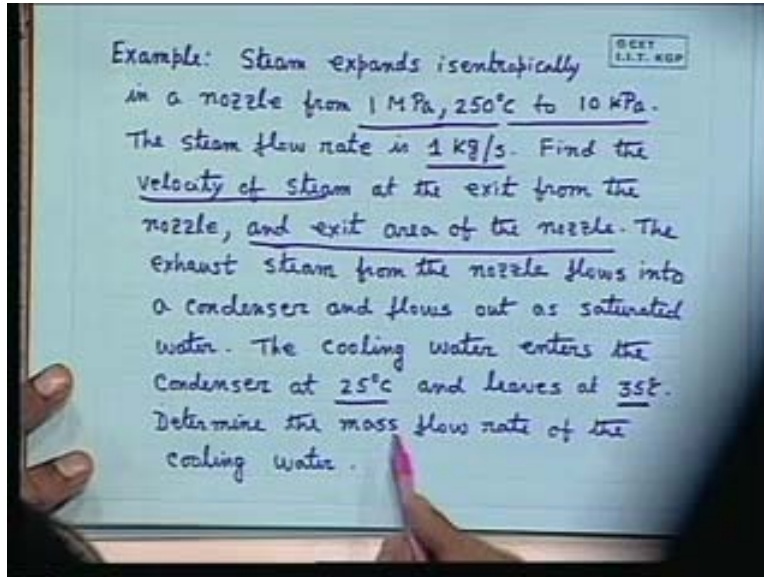 © CET
I.I.T. KGP
Example: Steam expands isentropically
in a nozzle from 1 MPa, 250°C to 10 kPa.
The steam flow rate is 1 kg/s. Find the
velocity of steam at the exit from the
nozzle, and exit area of the nozzle. The
exhaust steam from the nozzle flows into
a condenser and flows out as saturated
water. The cooling water enters the
condenser at 25°C and leaves at 35°C.
Determine the mass flow rate of the
cooling water.